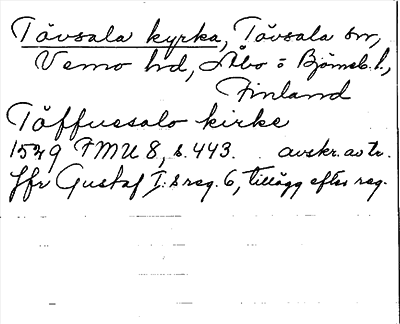 Tövsala kyrka, Tövsala sn,
Vemo hd, Åbo o Björneb. l.,
Finland
Töffuesalo kirke
1539 FMU 8, s. 443. avskr. av tr.
Jfr Gustaf I:s reg. 6, tillägg efter reg.